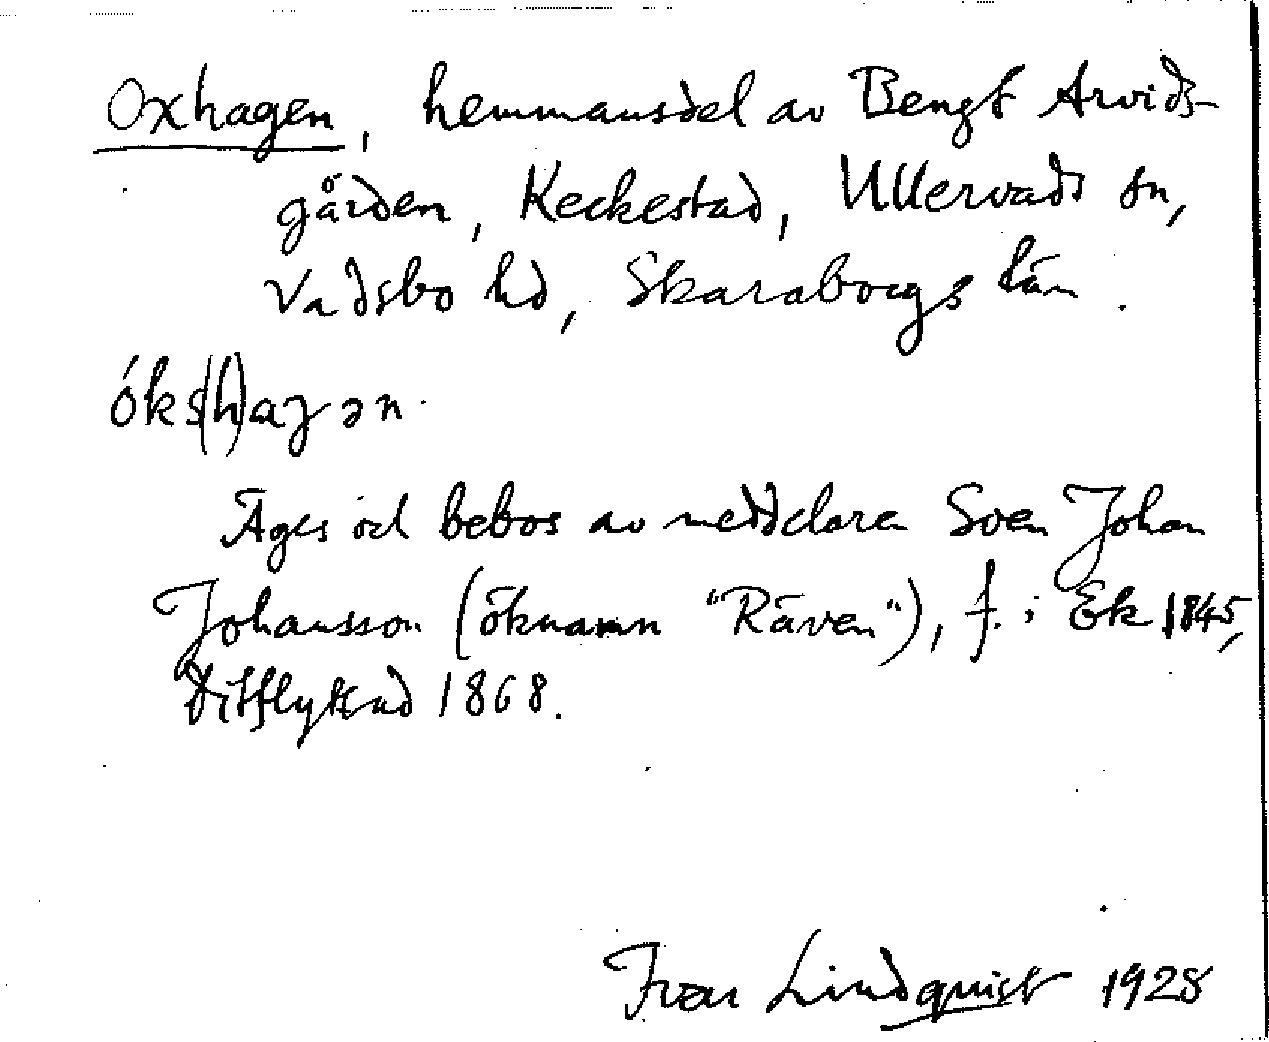 Oxhagen, hemmansdel av Bengt Arvids-
gården, Keckestad, Ullervads sn,
Vadsbo hd, Skaraborgs län.
óks(h)aʒən.
Äges och bebos av meddelaren Sven Johan
Johansson (öknamn "Räven"), f. i Ek 1845,
ditflyttad 1868.
Ivar Lindquist 1928